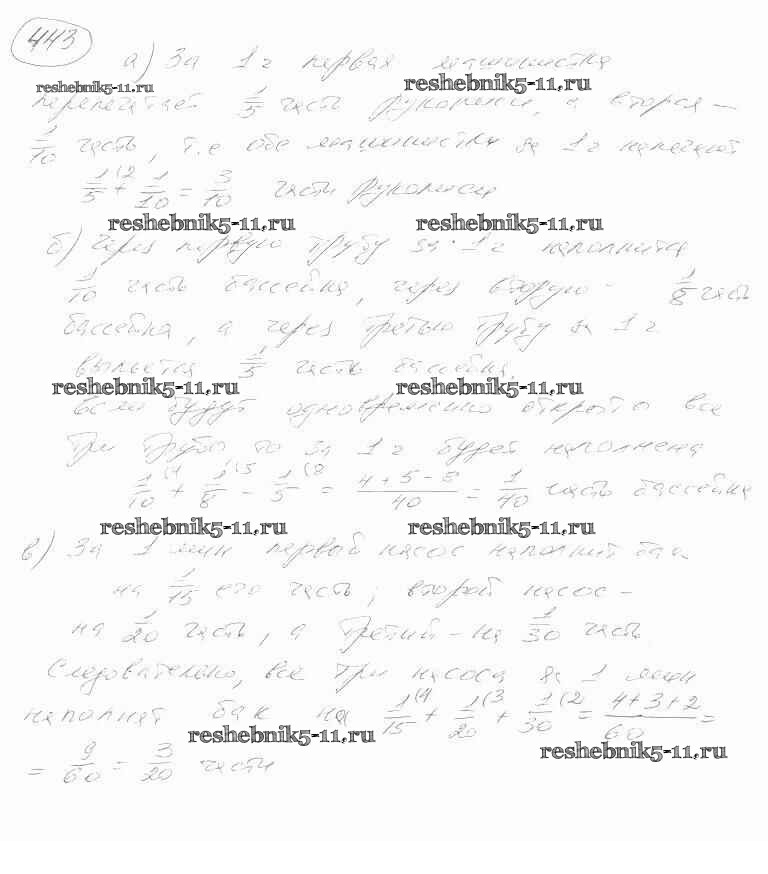 443
а) За 1 ч первая машинистка
reshebnik5-11.ru reshebnik5-11.ru
перепечатает 1/5 часть рукописи, а вторая —
1/10 часть, т.е обе машинистки за 1 ч напечатают
1/5 (2 + 1/10 = 3/10 части рукописи
reshebnik5-11.ru reshebnik5-11.ru
б) Через первую трубу за 1 ч наполнится
1/10 часть бассейна, через вторую - 1/8 часть
бассейна, а через третью трубу за 1 ч
выльется 1/5 часть бассейна.
reshebnik5-11.ru reshebnik5-11.ru
Если будут одновременно открыто все
три трубы то за 1 ч будет наполнена
1/10 (4 + 1/8 (5 - 1/5 (8 = (4+5-8)/40 = 1/40 часть бассейна
reshebnik5-11.ru reshebnik5-11.ru
в) За 1 мин первый насос наполнит бак
на 1/15 его часть; второй насос -
на 1/20 часть, а третий - на 1/30 часть.
Следовательно, все три насоса за 1 мин
наполнят бак на 1/15 (4 + 1/20 (3 + 1/30 (2 = (4+3+2)/60 =
reshebnik5-11.ru reshebnik5-11.ru
= 9/60 = 3/20 части